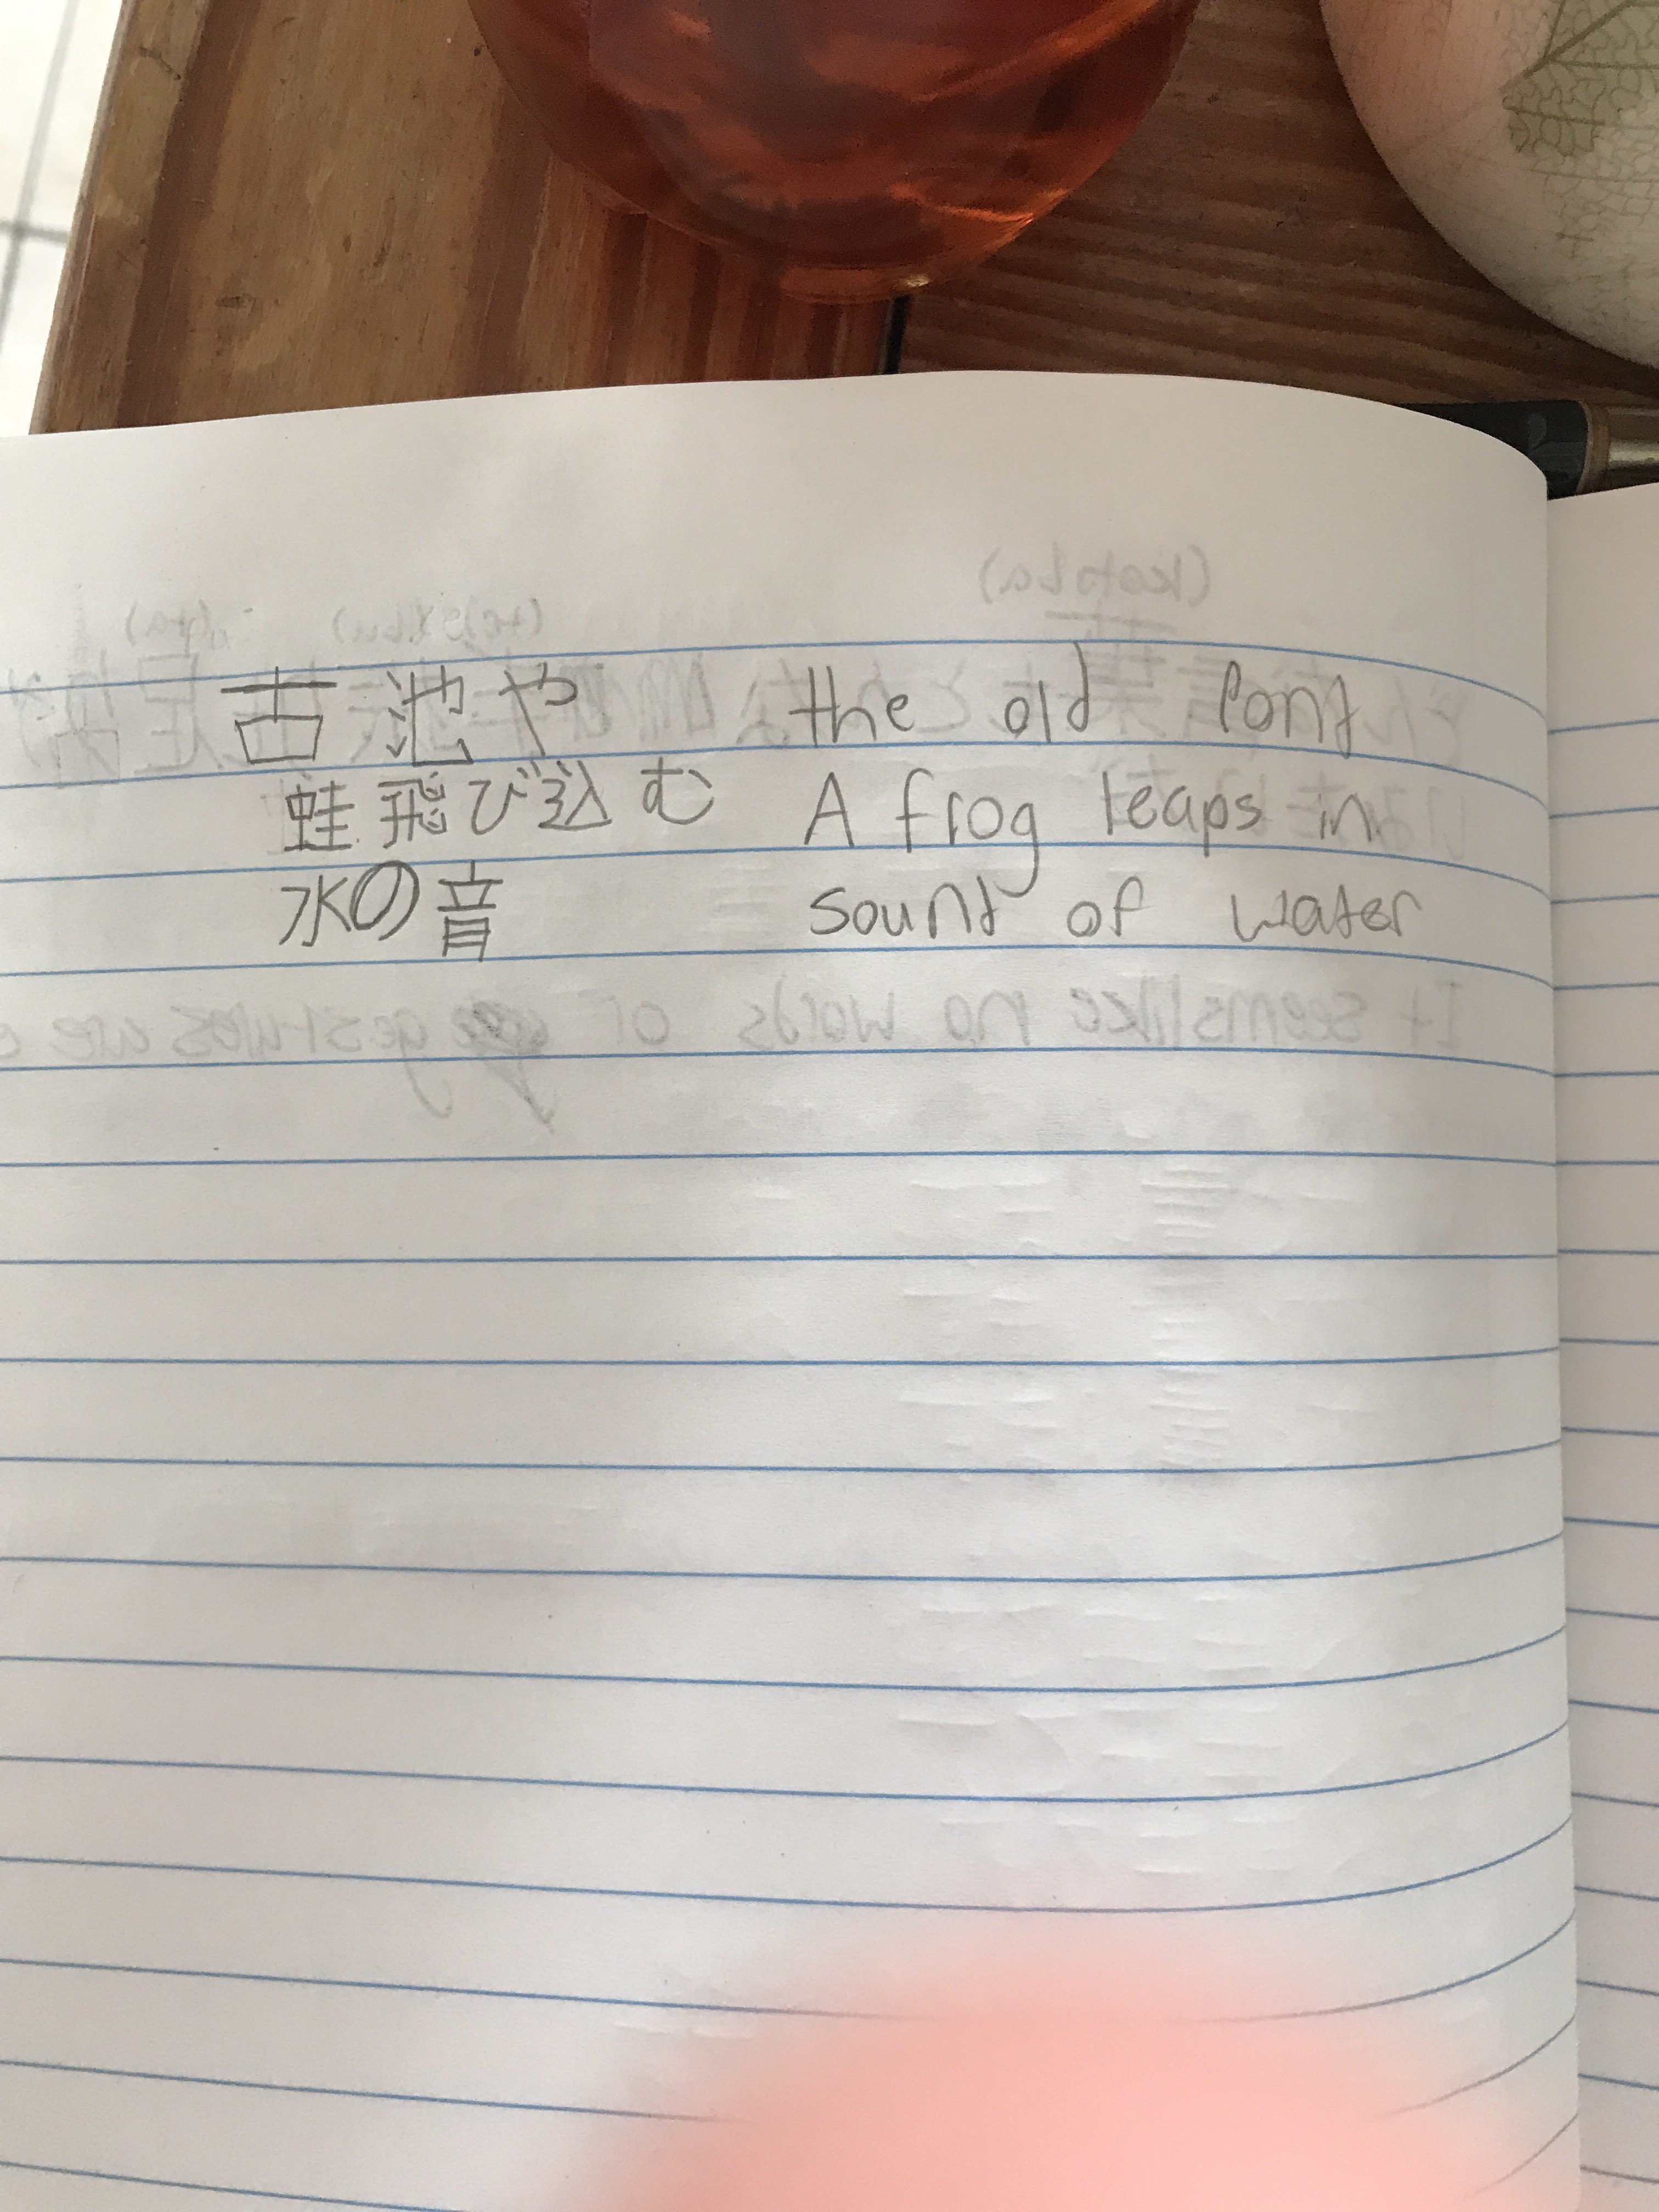 古池や the old pond
蛙飛び込む A frog leaps in
水の音 sound of water